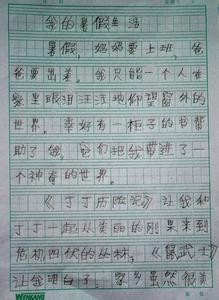 我的暑假生活
暑假，妈妈要上班，爸
爸要出差。我只能一个人在
家里眼泪汪汪地仰望窗外的
世界。幸好有一柜子的书帮
助了我，它们把我带进了一
个神奇的世界。
《丁丁历险记》让我和
丁丁一起从美丽的刚果来到
危机四伏的丛林；《鼠武士》
让我明白了：家乡虽然很美
WENKANG